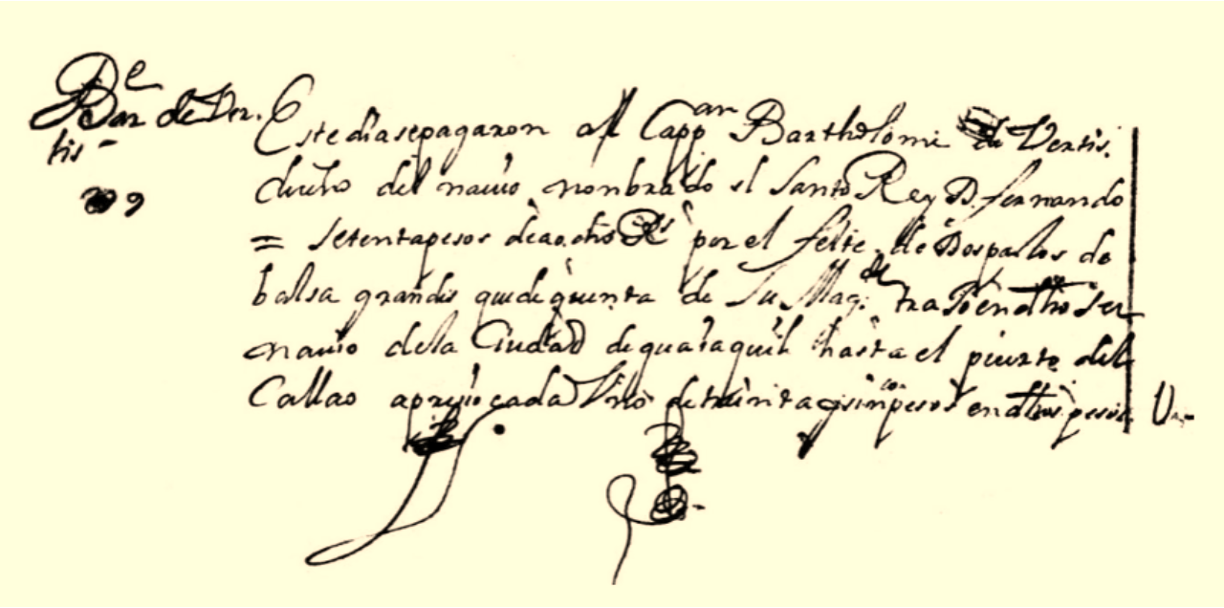 Bar de Ver
tis
9
Este dia se pagaron al Capp an Bartholome de Vertis.
dueño del nauio nonbrado el Santo Rey D. fernando
= setenta pesos de a ocho Rs por el flete de Dos palos de
balsa grandes que de quenta de Su Mag.d traxo en dho Su
nauio de la Ciudad de guaiaquil hasta el puerto del
Callao a preçio cada Vno de treinta y sin co pesos en dhos pessos